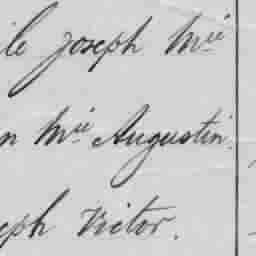 ile Joseph Mie
n Mie Augustin.
eph Victor.